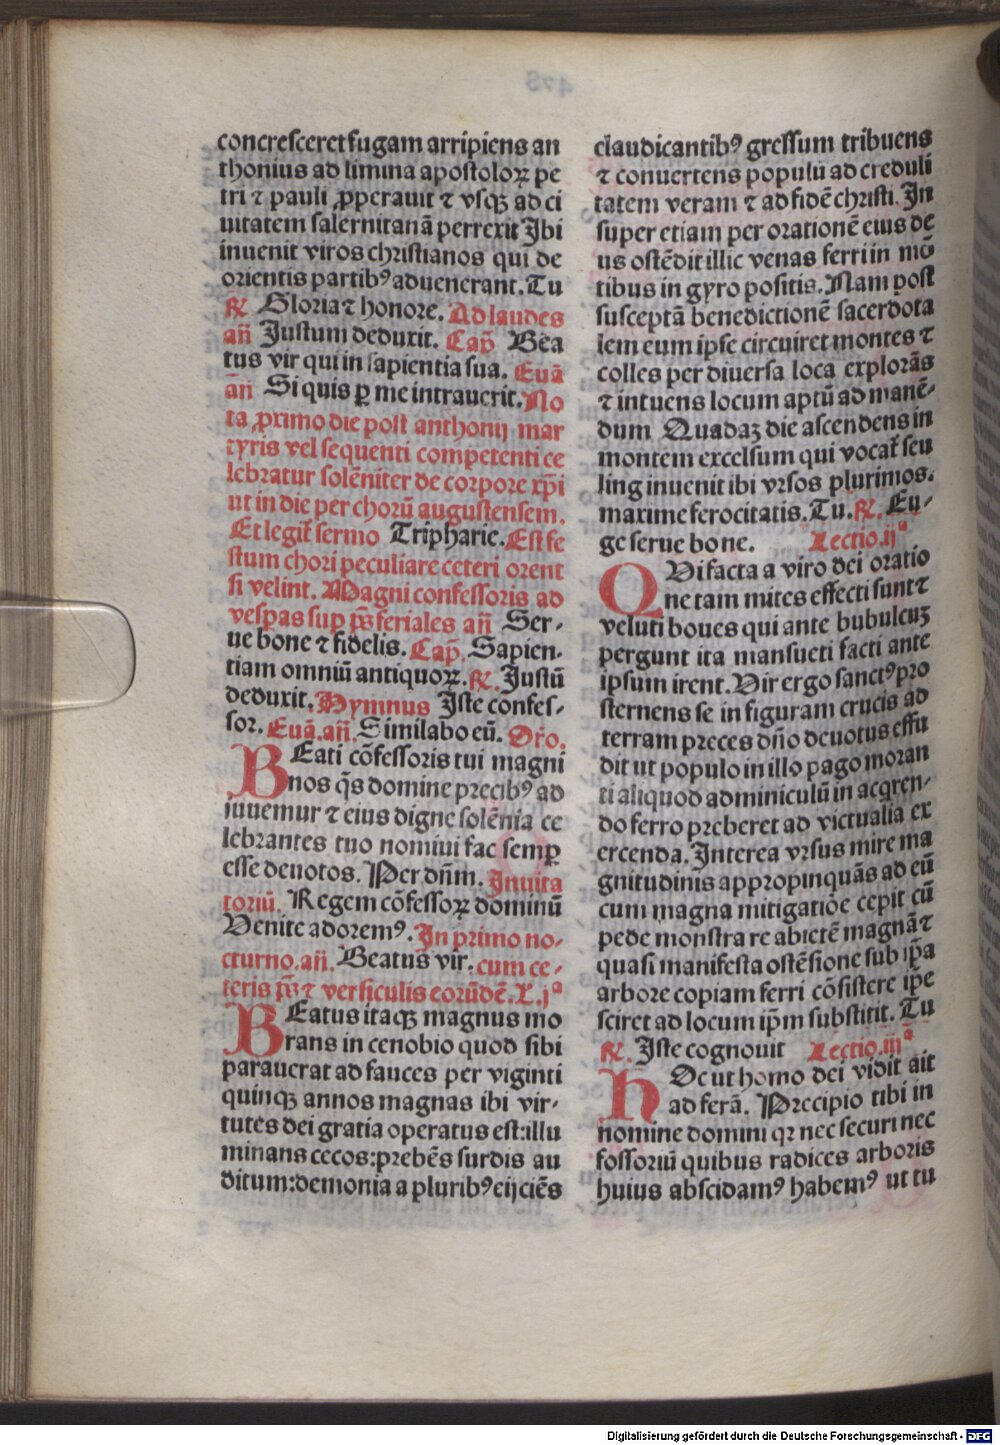 concresceret fugam arripiens an
thonius ad limina apostoloꝝ pe
tri ⁊ pauli ꝓperauit ⁊ vsqꝫ ad ci
uitatem salernitanā perrexit Ibi
inuenit viros christianos qui de
orientis partibꝰ aduenerant. Tu
℟ Gloria ⁊ honore. Ad laudes
añ Justum deduxit. Cap̄ Bea
tus vir qui in sapientia sua. Euā
añ Si quis ꝑ me intrauerit. No
ta ꝓximo die post anthonij mar
tyris vel sequenti competenti ce
lebratur solēniter de corpore xp̄i
ut in die per chorū augustensem.
Et legit̄ sermo Tripharie. Est fe
stum chori peculiare ceteri orent
si velint. Magni confessoris ad
vesꝑas suꝑ ps̄ feriales añ Ser-
ue bone ⁊ fidelis. Cap̄. Sapien-
tiam omniū antiquoꝝ. ℟. Justū
deduxit. Hymnus Iste confes-
sor. Euā. añ. Similabo eū. Oro.
BEati cōfessoris tui magni
nos q̄s domine precibꝰ ad
iuuemur ⁊ eius digne solēnia ce
lebrantes tuo nomini fac semꝑ
esse deuotos. Per dn̄m. Inuita
toriū. Regem cōfessoꝝ dominū
Venite adoremꝰ. In primo no-
cturno. añ. Beatus vir. cum ce-
teris ps̄ ⁊ versiculis eorūdē. L. jᵃ
BEatus itaqꝫ magnus mo
rans in cenobio quod sibi
parauerat ad fauces per viginti
quinqꝫ annos magnas ibi vir-
tutes dei gratia operatus est: illu
minans cecos: prebēs surdis au
ditum: demonia a pluribꝰ eijciēs
claudicantibꝰ gressum tribuens
⁊ conuertens populū ad creduli
tatem veram ⁊ ad fidē christi. In
super etiam per orationē eius de
us ostēdit illic venas ferri in mō
tibus in gyro positis. Nam post
susceptā benedictionē sacerdota
lem eum ipse circuiret montes ⁊
colles per diuersa loca explorās
⁊ intuens locum aptū ad manē-
dum Quadaꝫ die ascendens in
montem excelsum qui vocat̄ seu
ling inuenit ibi vrsos plurimos.
maxime ferocitatis. Tu. ℟. Eu-
ge serue bone. Lectio. ijᵃ
QVi facta a viro dei oratio
ne tam mites effecti sunt ⁊
veluti boues qui ante bubulcuꝫ
pergunt ita mansueti facti ante
ipsum irent. Vir ergo sanctꝰ pro
sternens se in figuram crucis ad
terram preces dn̄o deuotus effu
dit ut populo in illo pago moran
ti aliquod adminiculū in acqren-
do ferro preberet ad victualia ex
ercenda. Interea vrsus mire ma
gnitudinis appropinquās ad eū
cum magna mitigatiōe cepit cū
pede monstrare abietē magnā ⁊
quasi manifesta ostēsione sub ip̄a
arbore copiam ferri cōsistere ip̄e
sciret ad locum ip̄m substitit. Tu
℟. Iste cognouit Lectio. iijᵃ
HOc ut homo dei vidit ait
ad ferā. Precipio tibi in
nomine domini qꝛ nec securi nec
fossoriū quibus radices arboris
huius abscidamꝰ habemꝰ ut tu
Digitalisierung gefördert durch die Deutsche Forschungsgemeinschaft - DFG